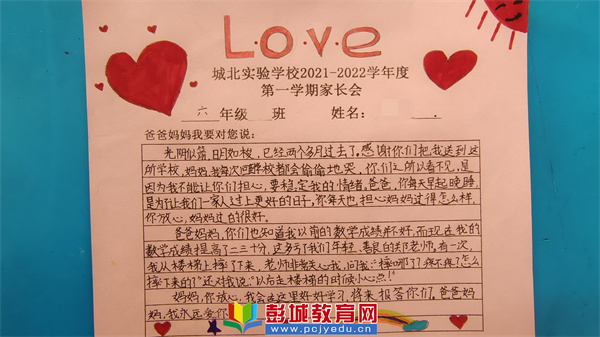 L·O·V·e
城北实验学校2021-2022学年度
第一学期家长会
六 年级 班 姓名:
爸爸妈妈我要对您说:
光阴似箭,日月如梭,已经两个多月过去了。感谢你们把我送到这
所学校,妈妈,我每次回学校都会偷偷地哭,你们之所以看不见,是
因为我不能让你们担心,要稳定我的情绪。爸爸,你每天早起晚睡,
是为了让我们一家人过上更好的日子。你每天也担心妈妈过得怎么样,
你放心,妈妈过的很好。
爸爸妈妈,你们也知道我以前的数学成绩不好,而现在我的
数学成绩提高了二三十分,这多亏了我们年轻、善良的郑老师,有一次,
我从楼梯上摔了下来,老师非常关心我,问我:"摔哪了?疼不疼?怎么
摔下来的?"还对我说:"以后走楼梯的时候小心点!"
妈妈,你放心,我会在这里好好学习,将来报答你们,爸爸妈
妈,我永远爱你
彭城教育网
www.pcjyedu.cn